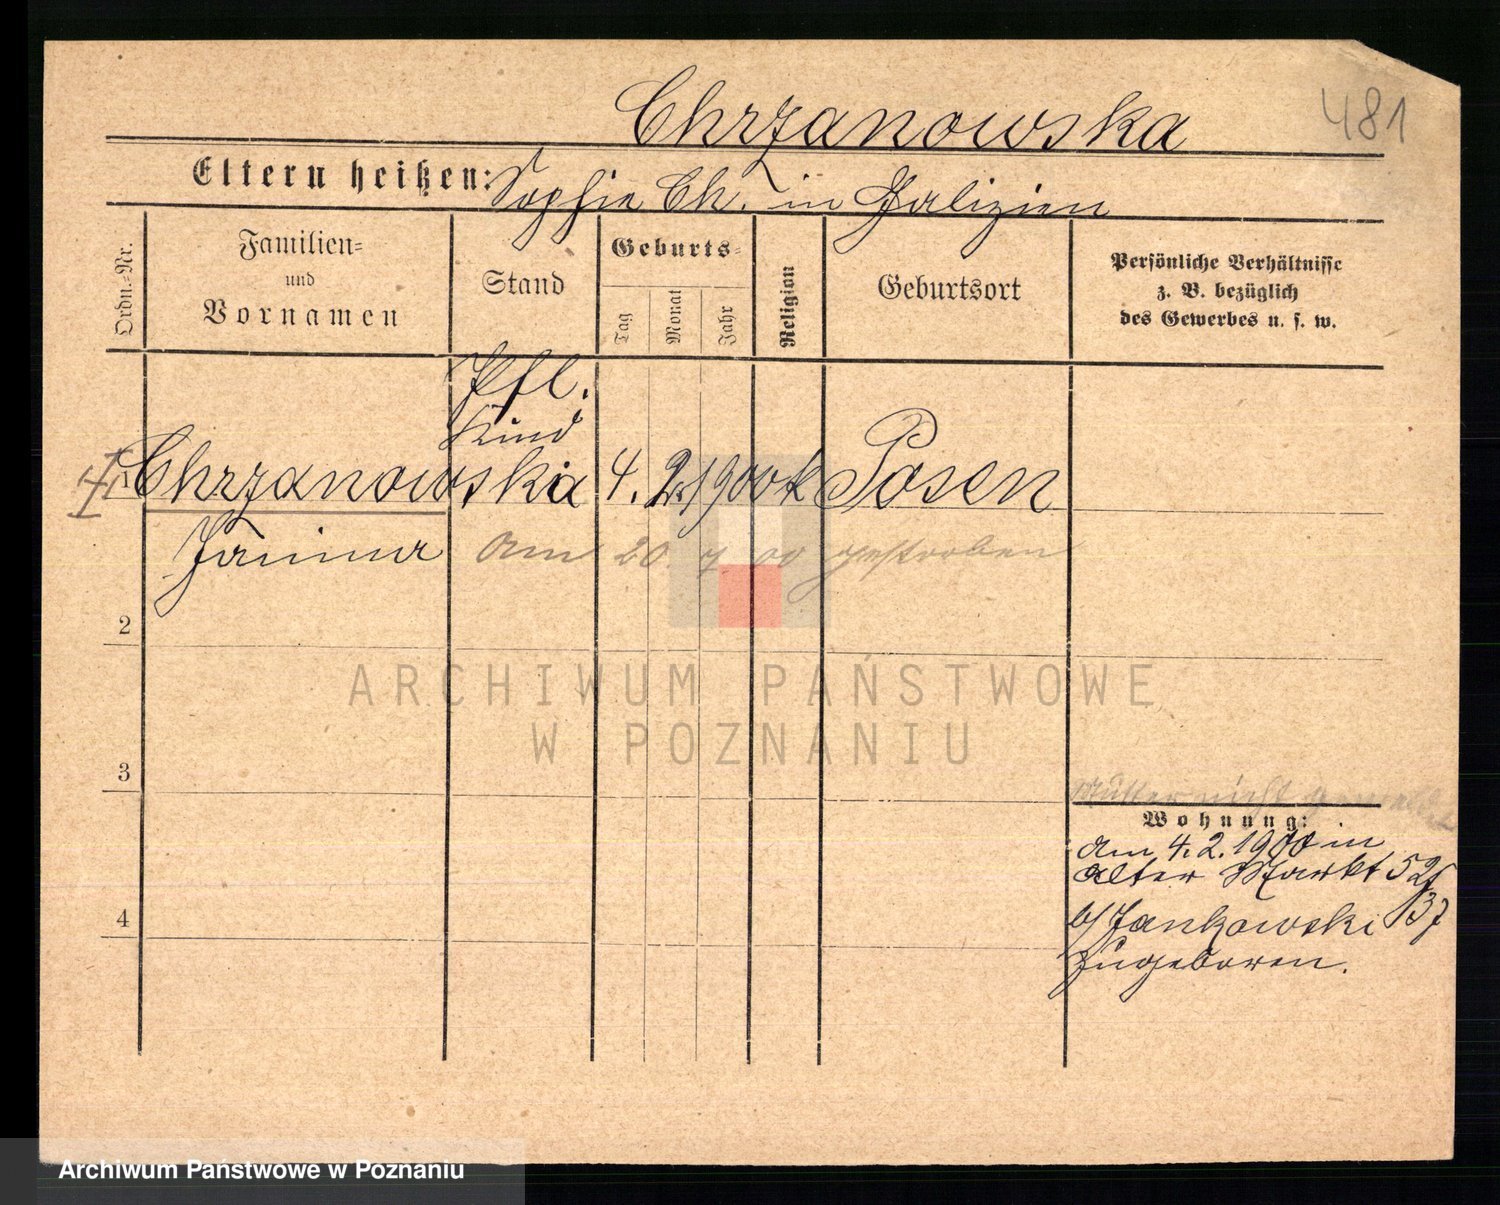 481
Chrzanowska
Eltern heißen: Sophie Ch. in Galizien
Ordn.-Nr.
Familien- und Vornamen
Stand
Geburts-
Tag
Monat
Jahr
Religion
Geburtsort
Persönliche Verhältnisse
z. B. bezüglich
des Gewerbes u. s. w.
Pfl.
Kind
1 Chrzanowska 4. 2. 1900 k Posen
Janina am 20 7 00 gestorben
2
3
4
Mutter nicht gemeldet
Wohnung:
am 4. 2. 1900 in
Alter Markt 52
b/ Jankowski
zugeboren.
ARCHIWUM PAŃSTWOWE
W POZNANIU
Archiwum Państwowe w Poznaniu